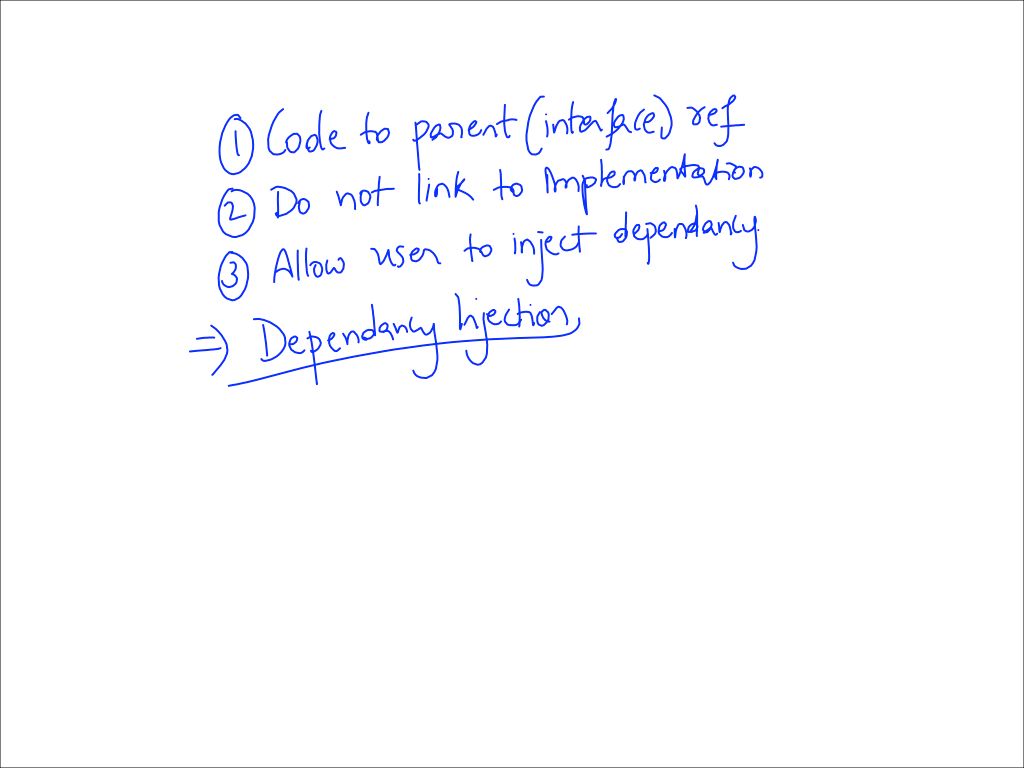 ① Code to parent (interface) ref
② Do not link to Implementation
③ Allow user to inject dependancy
⇒ Dependancy Injection